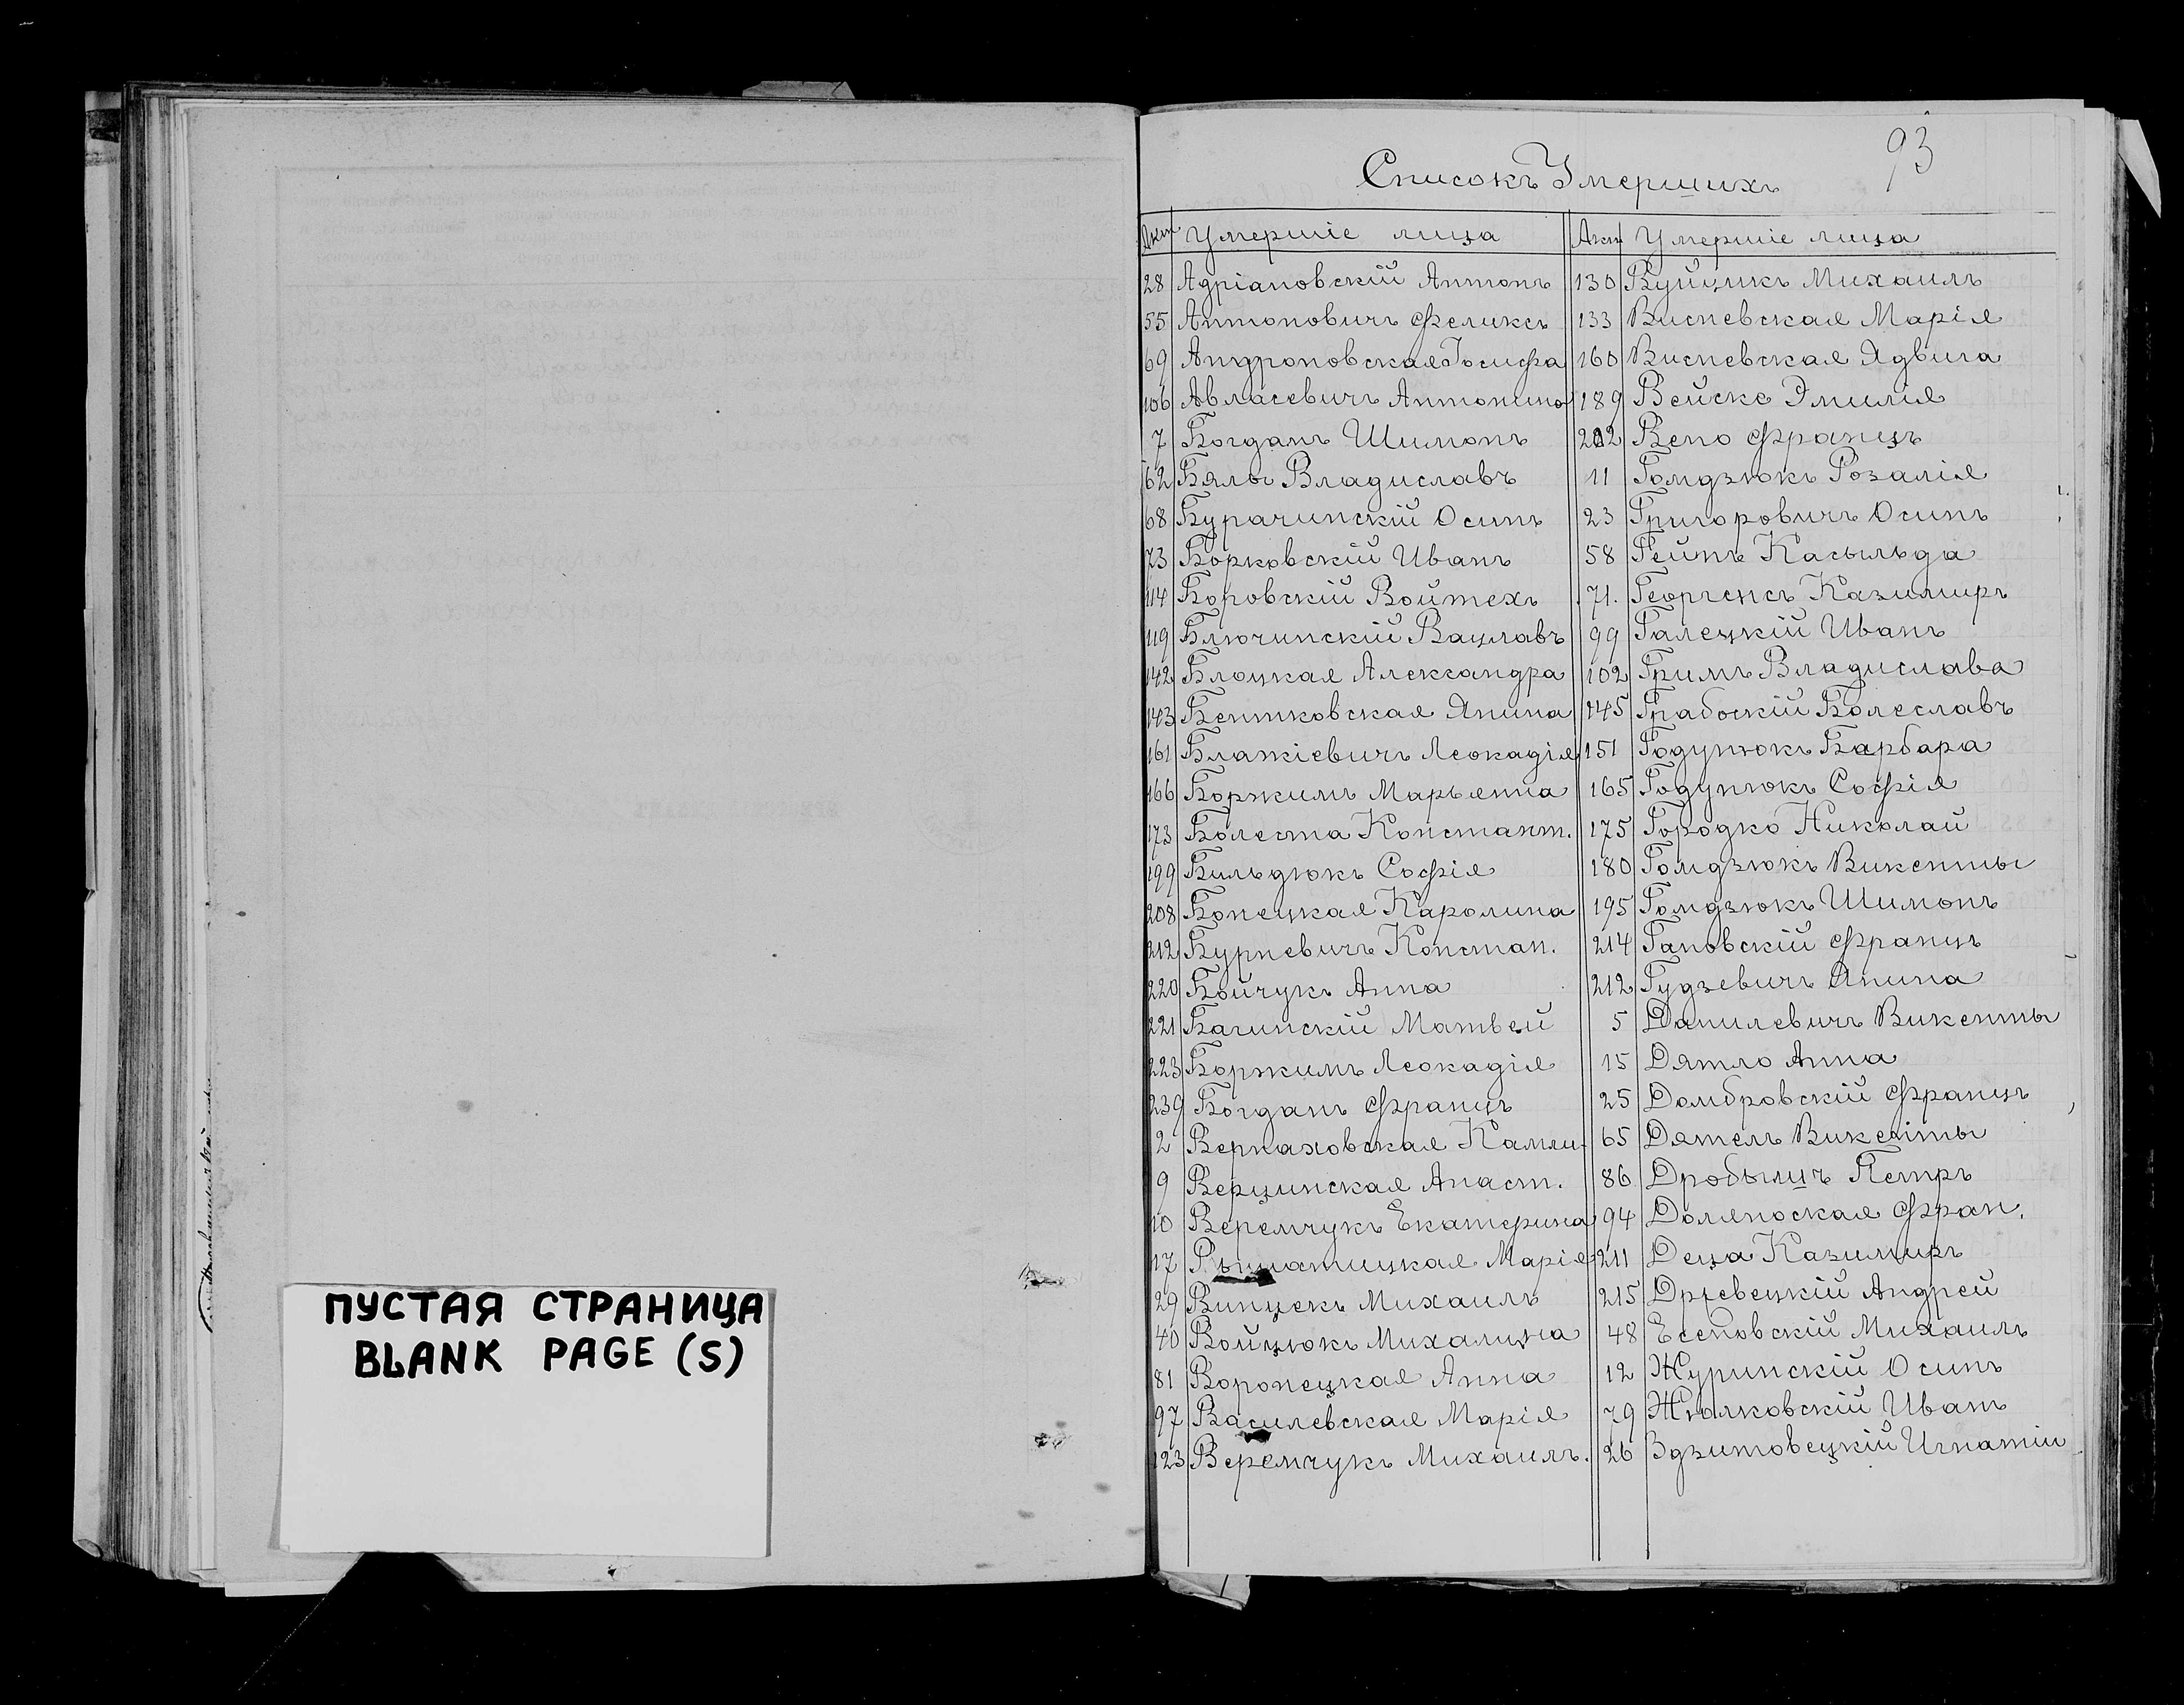 93
Списокъ Умершихъ
Акт Умершіе лица
28 Адріановскій Антонъ
55 Антоновичъ Феликсъ
69 Андроновская Іосифа
106 Авласевичъ Антонина
7 Богданъ Шимонъ
62 Бялы Владиславъ
68 Бурачинскій Осипъ
73 Борковскій Иванъ
114 Боровскій Войтехъ
119 Блючинскій Вацлавъ
142 Блоцкая Александра
143 Бентковская Янина
161 Блажіевичъ Леокадія
166 Боржимъ Марьянна
173 Болеста Констант.
199 Бильдюкъ Софія
208 Бонецкая Каролина
212 Бурневичъ Констан.
220 Бойчукъ Анна
221 Багинскій Матвей
223 Боржимъ Леокадія
239 Богданъ Францъ
2 Вернаховская Камли-
9 Верцинская Анаст.
10 Веремчукъ Екатерина
17 Марія
29 Винцекъ Михаилъ
40 Войцюкъ Михалина
81 Воронецкая Анна
97 Василевская Марія
123 Веремчукъ Михаилъ.
Акт Умершіе лица
130 Вуйцикъ Михаилъ
133 Висневская Марія
160 Висневская Ядвига
189 Вейске Эмилія
202 Вено Францъ
11 Гомдзюкъ Розалія
23 Григоровичъ Осипъ
58 Гейнъ Касыльда
71. Георгенсъ Казимиръ
99 Галецкій Иванъ
102 Гримъ Владислава
145 Грабоскій Болеславъ
151 Годунюкъ Барбара
165 Годунюкъ Софія
175 Городко Николай
180 Гомдзюкъ Викенты
195 Гомдзюкъ Шимонъ
214 Гановскій Францъ
212 Гудзевичъ Янина
5 Данилевичъ Викенты
15 Дятло Анна
25 Домбровскій Францъ
65 Дятелъ Викенты
86 Дробышъ Петръ
94 Доляноская Фран.
211 Деца Казимиръ
215 Држевецкій Андрей
48 Есеновскій Михаилъ
12 Журинскій Осипъ
79 Жюлковскій Иванъ
26 Здзитовецкій Игнатіи
ПУСТАЯ СТРАНИЦА
BLANK PAGE (S)